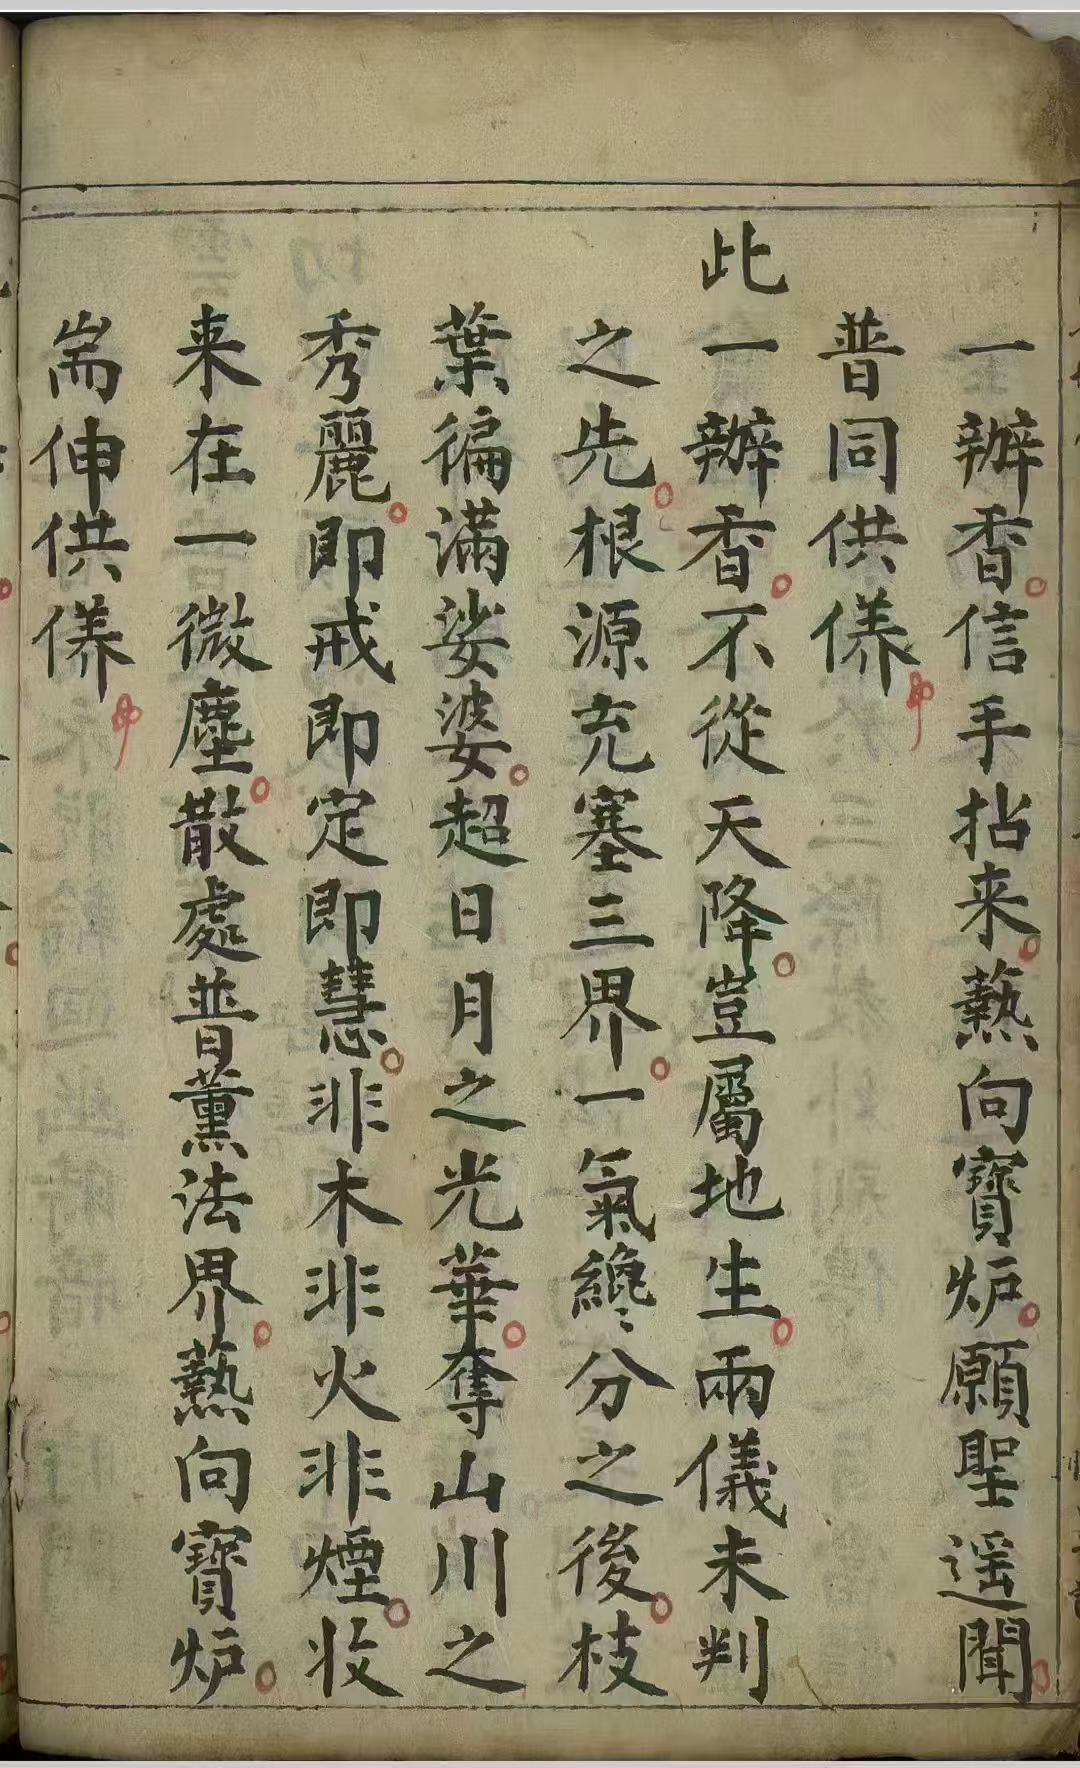 一辦香信手拈来爇向寶炉願聖遥聞
普同供養
此一辦香不從天降豈屬地生兩儀未判
之先根源充塞三界一氣纔分之後枝
葉徧滿娑婆超日月之光華奪山川之
秀麗即戒即定即慧非木非火非煙收
来在一微塵散處普薰法界爇向寶炉
耑伸供養